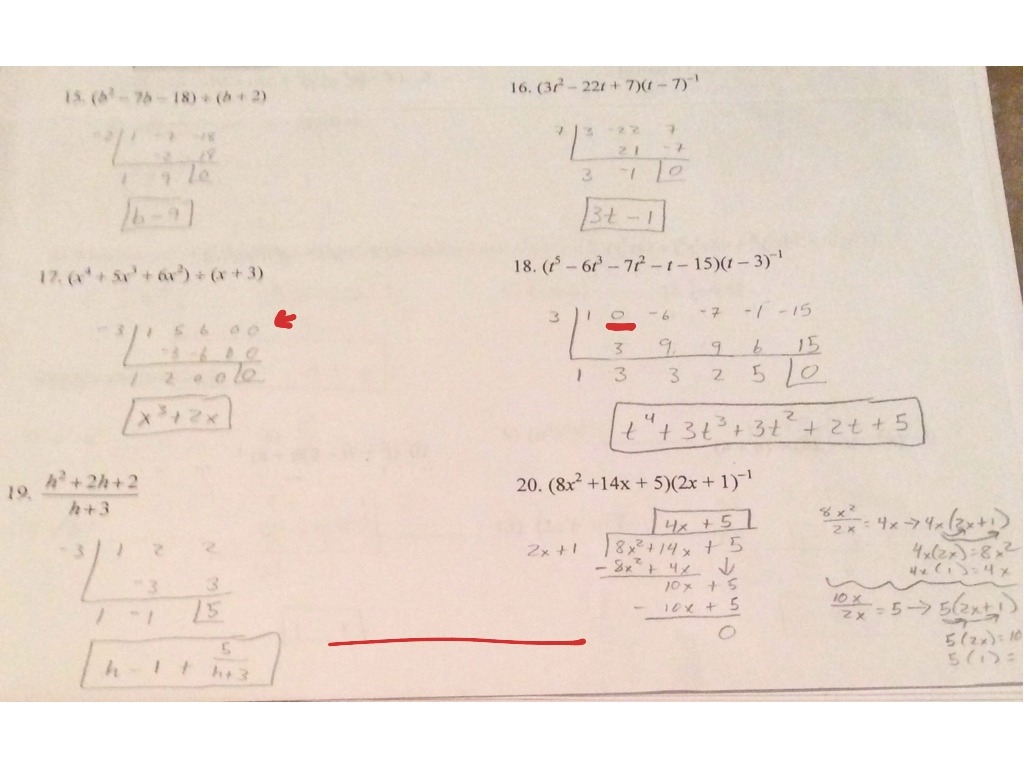 15. (b² − 7b − 18) ÷ (b + 2)
-2 1 -7 -18
-2 18
1 -9 0
b − 9
16. (3t² − 22t + 7)(t − 7)⁻¹
7 3 -22 7
21 -7
3 -1 0
3t − 1
17. (x⁴ + 5x³ + 6x²) ÷ (x + 3)
-3 1 5 6 0 0
-3 -6 0 0
1 2 0 0 0
x³ + 2x
18. (t⁵ − 6t³ − 7t² − t − 15)(t − 3)⁻¹
3 1 0 -6 -7 -1 -15
3 9 9 6 15
1 3 3 2 5 0
t⁴ + 3t³ + 3t² + 2t + 5
19. h² + 2h + 2
h + 3
-3 1 2 2
-3 3
1 -1 5
h − 1 + 5
h+3
20. (8x² +14x + 5)(2x + 1)⁻¹
4x + 5
2x+1 8x²+14x + 5
− 8x² + 4x ↓
10x + 5
− 10x + 5
0
8x²
2x = 4x → 4x(2x+1)
4x(2x) = 8x²
4x(1) = 4x
10x
2x = 5 → 5(2x+1)
5(2x) = 10
5(1) =